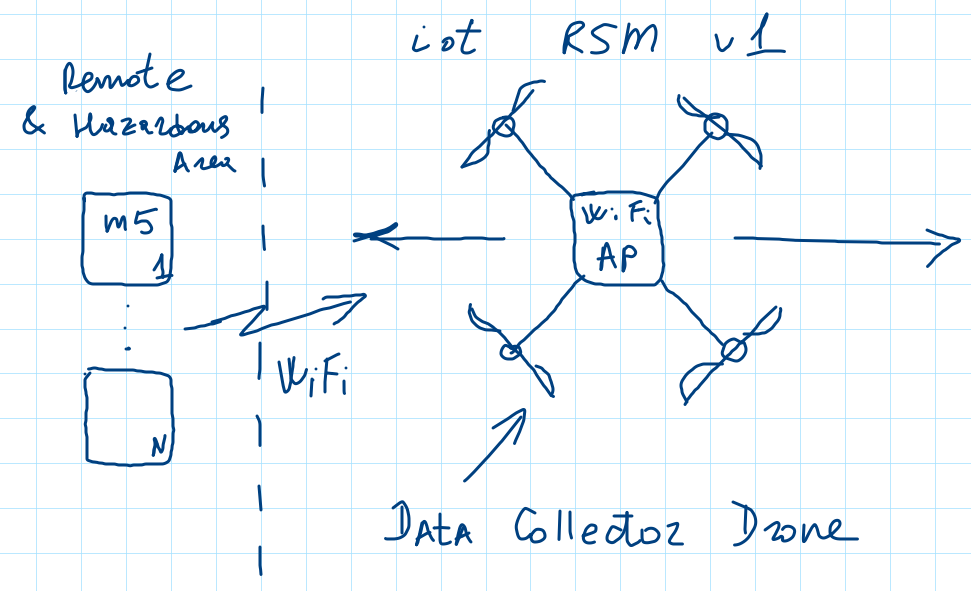 iot RSM v1
Remote
& Hazardous
Area
m5
1
N
WiFi
WiFi
AP
Data Collector Drone